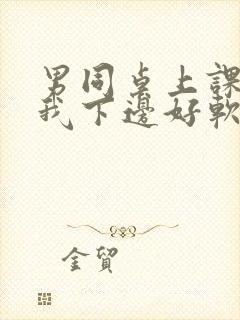 男同桌上課
我下邊好軟
金貿